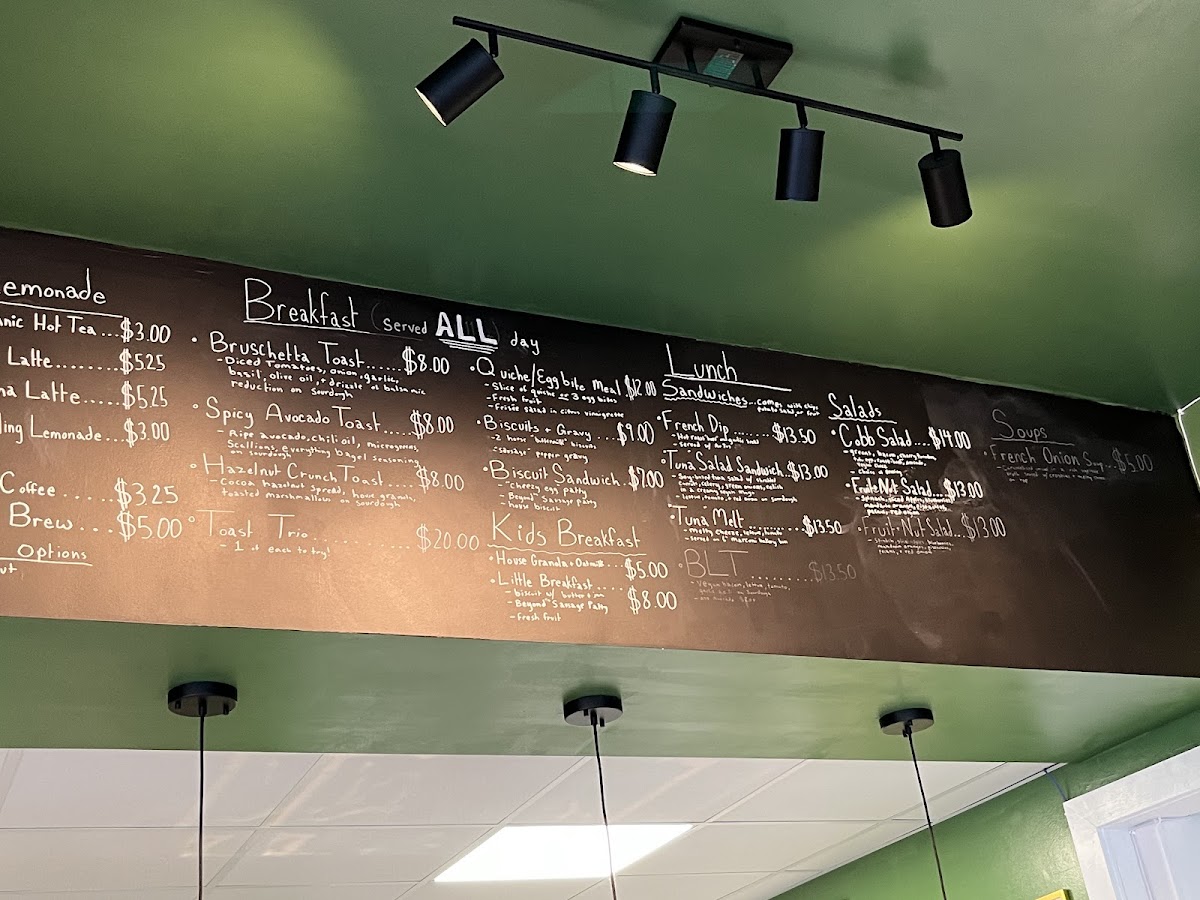 emonade
nic Hot Tea...$3.00
Latte........$5.25
na Latte.....$5.25
ling Lemonade...$3.00
Coffee.....$3.25
Brew...$5.00
Options
ut
Breakfast (served ALL day
• Bruschetta Toast......$8.00
- Diced Tomatoes, onion, garlic,
basil, olive oil, + drizzle of balsamic
reduction on sourdough
• Spicy Avocado Toast....$8.00
- Ripe avocado, chili oil, microgreens,
Scallions, everything bagel seasoning
on sourdough
• Hazelnut Crunch Toast....$8.00
- Cocoa hazelnut spread, house granola,
toasted marshmallow on sourdough
• Toast Trio..............$20.00
- 1 of each to try!
• Quiche/Egg bite Meal $12.00
- Slice of quiche or 3 egg bites
- Fresh fruit
- Frisée salad in citrus vinaigrette
• Biscuits + Gravy....$9.00
- 2 house "buttermilk" biscuits
- "sausage" pepper gravy
• Biscuit Sandwich..$7.00
- "Cheesy" egg patty
- Beyond Sausage patty
- house biscuit
Kids Breakfast
• House Granola + Oatmilk...$5.00
• Little Breakfast.....$8.00
- biscuit w/ butter + jam
- Beyond Sausage Patty
- Fresh fruit
Lunch
Sandwiches...comes with chips
potato salad, or fruit
• French Dip.......$13.50
- served w/ Au Jus
• Tuna Salad Sandwich..$13.00
- lettuce, tomato, + red onion on sourdough
• Tuna Melt.........$13.50
- Melty cheese, lettuce, tomato,
• BLT..........$13.50
- Vegan bacon, lettuce, tomato,
Salads
• Cobb Salad...$14.00
• Fruit+Nut Salad...$13.00
• Fruit+Nut Salad...$13.00
Soups
• French Onion Soup...$5.00